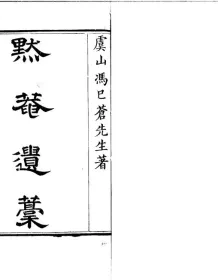 虞山馮已蒼先生著
默菴遺藁